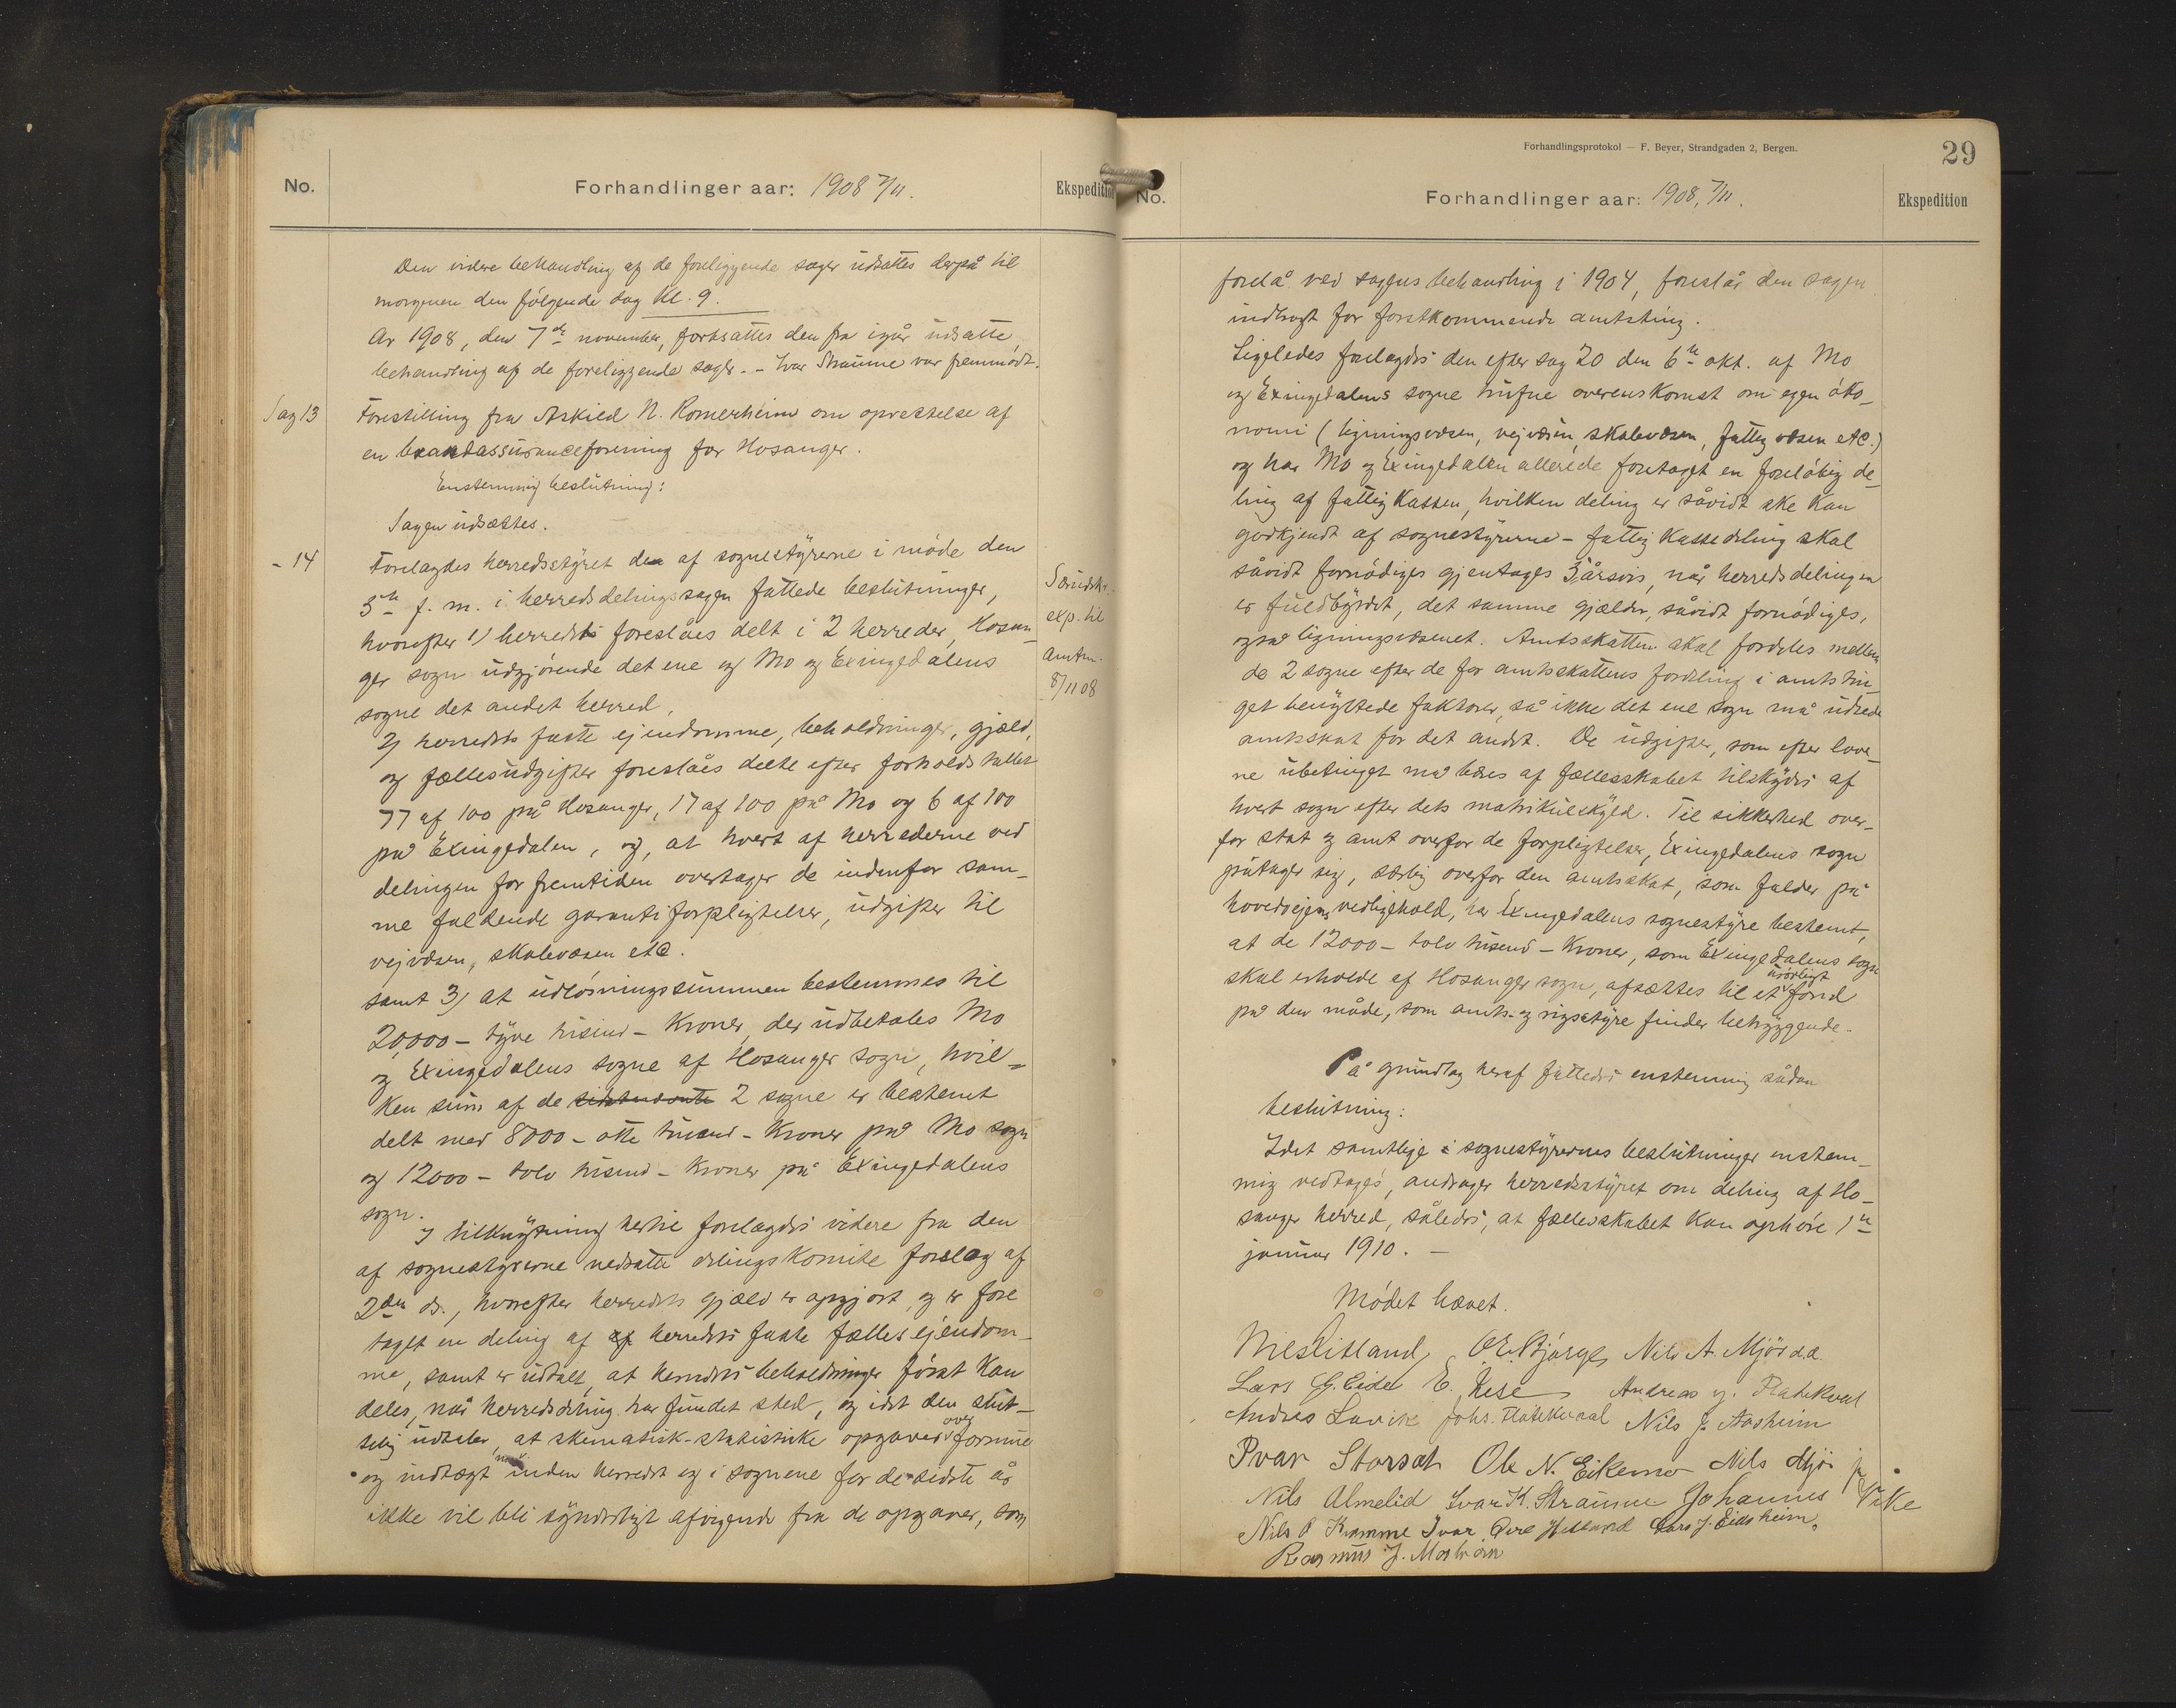 No.
Forhandlinger aar: 1908 7/11.
Ekspedition
Den videre behandling af de foreliggende sager udsattes derpå til
morgenen den følgende dag kl. 9.
År 1908, den 7de november, fortsattes den fra igår udsatte
behandling af de foreliggende sager. - Ivar Straume var fremmødt.
Sag 13
Forestilling fra Askild N. Romerheim om oprettelse af
en brandassuranceforening for Hosanger.
Enstemmig beslutning:
Sagen udsættes.
- 14
Forelagdes herredsstyret de af sognestyrerne i møde den
5te f. m. i herredsdelingssagen fattede beslutninger,
hvorefter 1) herredet foreslåes delt i 2 herreder, Hosan-
ger sogn udgjørende det ene og Mo og Exingedalens
sogne det andet herred,
2) herredets faste ejendomme, beholdninger, gjæld,
og fællesudgifter foreslåes delte efter forholdstallet
77 af 100 på Hosanger, 17 af 100 på Mo og 6 af 100
på Exingedalen, og, at hvert af herrederne ved
delingen for fremtiden overtager de indenfor sam-
me faldende garantiforpligtelser, udgifter til
vejvæsen, skolevæsen etc.
samt 3) at udløsningssummen bestemmes til
20,000 - tyve tusind - kroner, der udbetales Mo
og Exingedalens sogne af Hosanger sogn, hvil-
ken sum af de sidstnævnte 2 sogne er bestemt
delt med 8000 - otte tusend - kroner på Mo sogn
og 12000 - tolv tusend - kroner på Exingedalens
sogn.
I tilknytning hertil forelagdes videre fra den
af sognestyrerne nedsatte delingskomite forslag af
2den ds., hvorefter herredets gjæld er opgjort, og er fore
taget en deling af af herredets faste fælles ejendom-
me, samt er udtalt, at herredets beholdninger først kan
deles, når herredsdeling har fundet sted, og idet den slut-
telig udtaler, at skematisk-statistiske opgaver over formue
og indtægt inden herredet og i sognene for de sidste år
ikke vil bli synderligt afvigende fra de opgaver, som
Særudskr.
exp. til
amtm.
8/11 08
Forhandlingsprotokol — F. Beyer, Strandgaden 2, Bergen.
29
No.
Forhandlinger aar: 1908, 7/11.
Ekspedition
forelå ved sagens behandling i 1904, foreslår den sagen
indbragt for førstkommende amtsting.
Ligeledes forelagdes den efter sag 20 den 6te okt. af Mo
og Exingedalens sogne trufne overenskomst om egen øko-
nomi (ligningsvæsen, vejvæsen, skolevæsen, fattigvæsen etc.)
og har Mo og Exingedalen allerede foretaget en foreløbig de-
ling af fattigkassen, hvilken deling er såvidt ske kan
godkjendt af sognestyrerne - fattigkassedeling skal
såvidt fornødiges gjentages 5årsvis, når herredsdelingen
er fuldbyrdet, det samme gjælder, såvidt fornødiges,
også ligningsvæsenet. Amtsskatten skal fordeles mellem
de 2 sogne efter de for amtsskattens fordeling i amtstin-
get benyttede faktorer, så ikke det ene sogn må udrede
amtsskat for det andet. De udgifter, som efter love-
ne ubetinget må bæres af fællesskabet tilskydes af
hvert sogn efter dets matrikulskyld. Til sikkerhed over-
for stat og amt overfor de forpligtelser, Exingedalens sogn
påtager sig, særlig overfor den amtsskat, som falder på
hovedvejens vedligehold, har Exingedalens sognestyre bestemt,
at de 12000 - tolv tusend - kroner, som Exingedalens sogn
skal erholde af Hosanger sogn, afsættes til et urørligt fond
på den måde, som amts- og rigsstyre finder betryggende.
På grundlag heraf fattedes enstemmig sådan
beslutning:
Idet samtlige i sognestyrernes beslutninger enstem-
mig vedtages, andrager herredsstyret om deling af Ho-
sanger herred, således, at fællesskabet kan ophøre 1te
januar 1910. —
Mødet hævet.
Nils Litland O. E. Bjørge Nils A. Mjøs d.æ.
Lars G. Eide E. Kese Andreas J. Flatekval
Andres Lavik Johs. Flatekval Nils J. Aasheim
Ivar Storset Ole N. Eikemo Nils Mjøs jr
Nils Almelid Ivar K. Straume Johannes Vike
Nils O Kvamme Ivar Helland Lars J. Eidsheim.
Rasmus J. Mostrøm